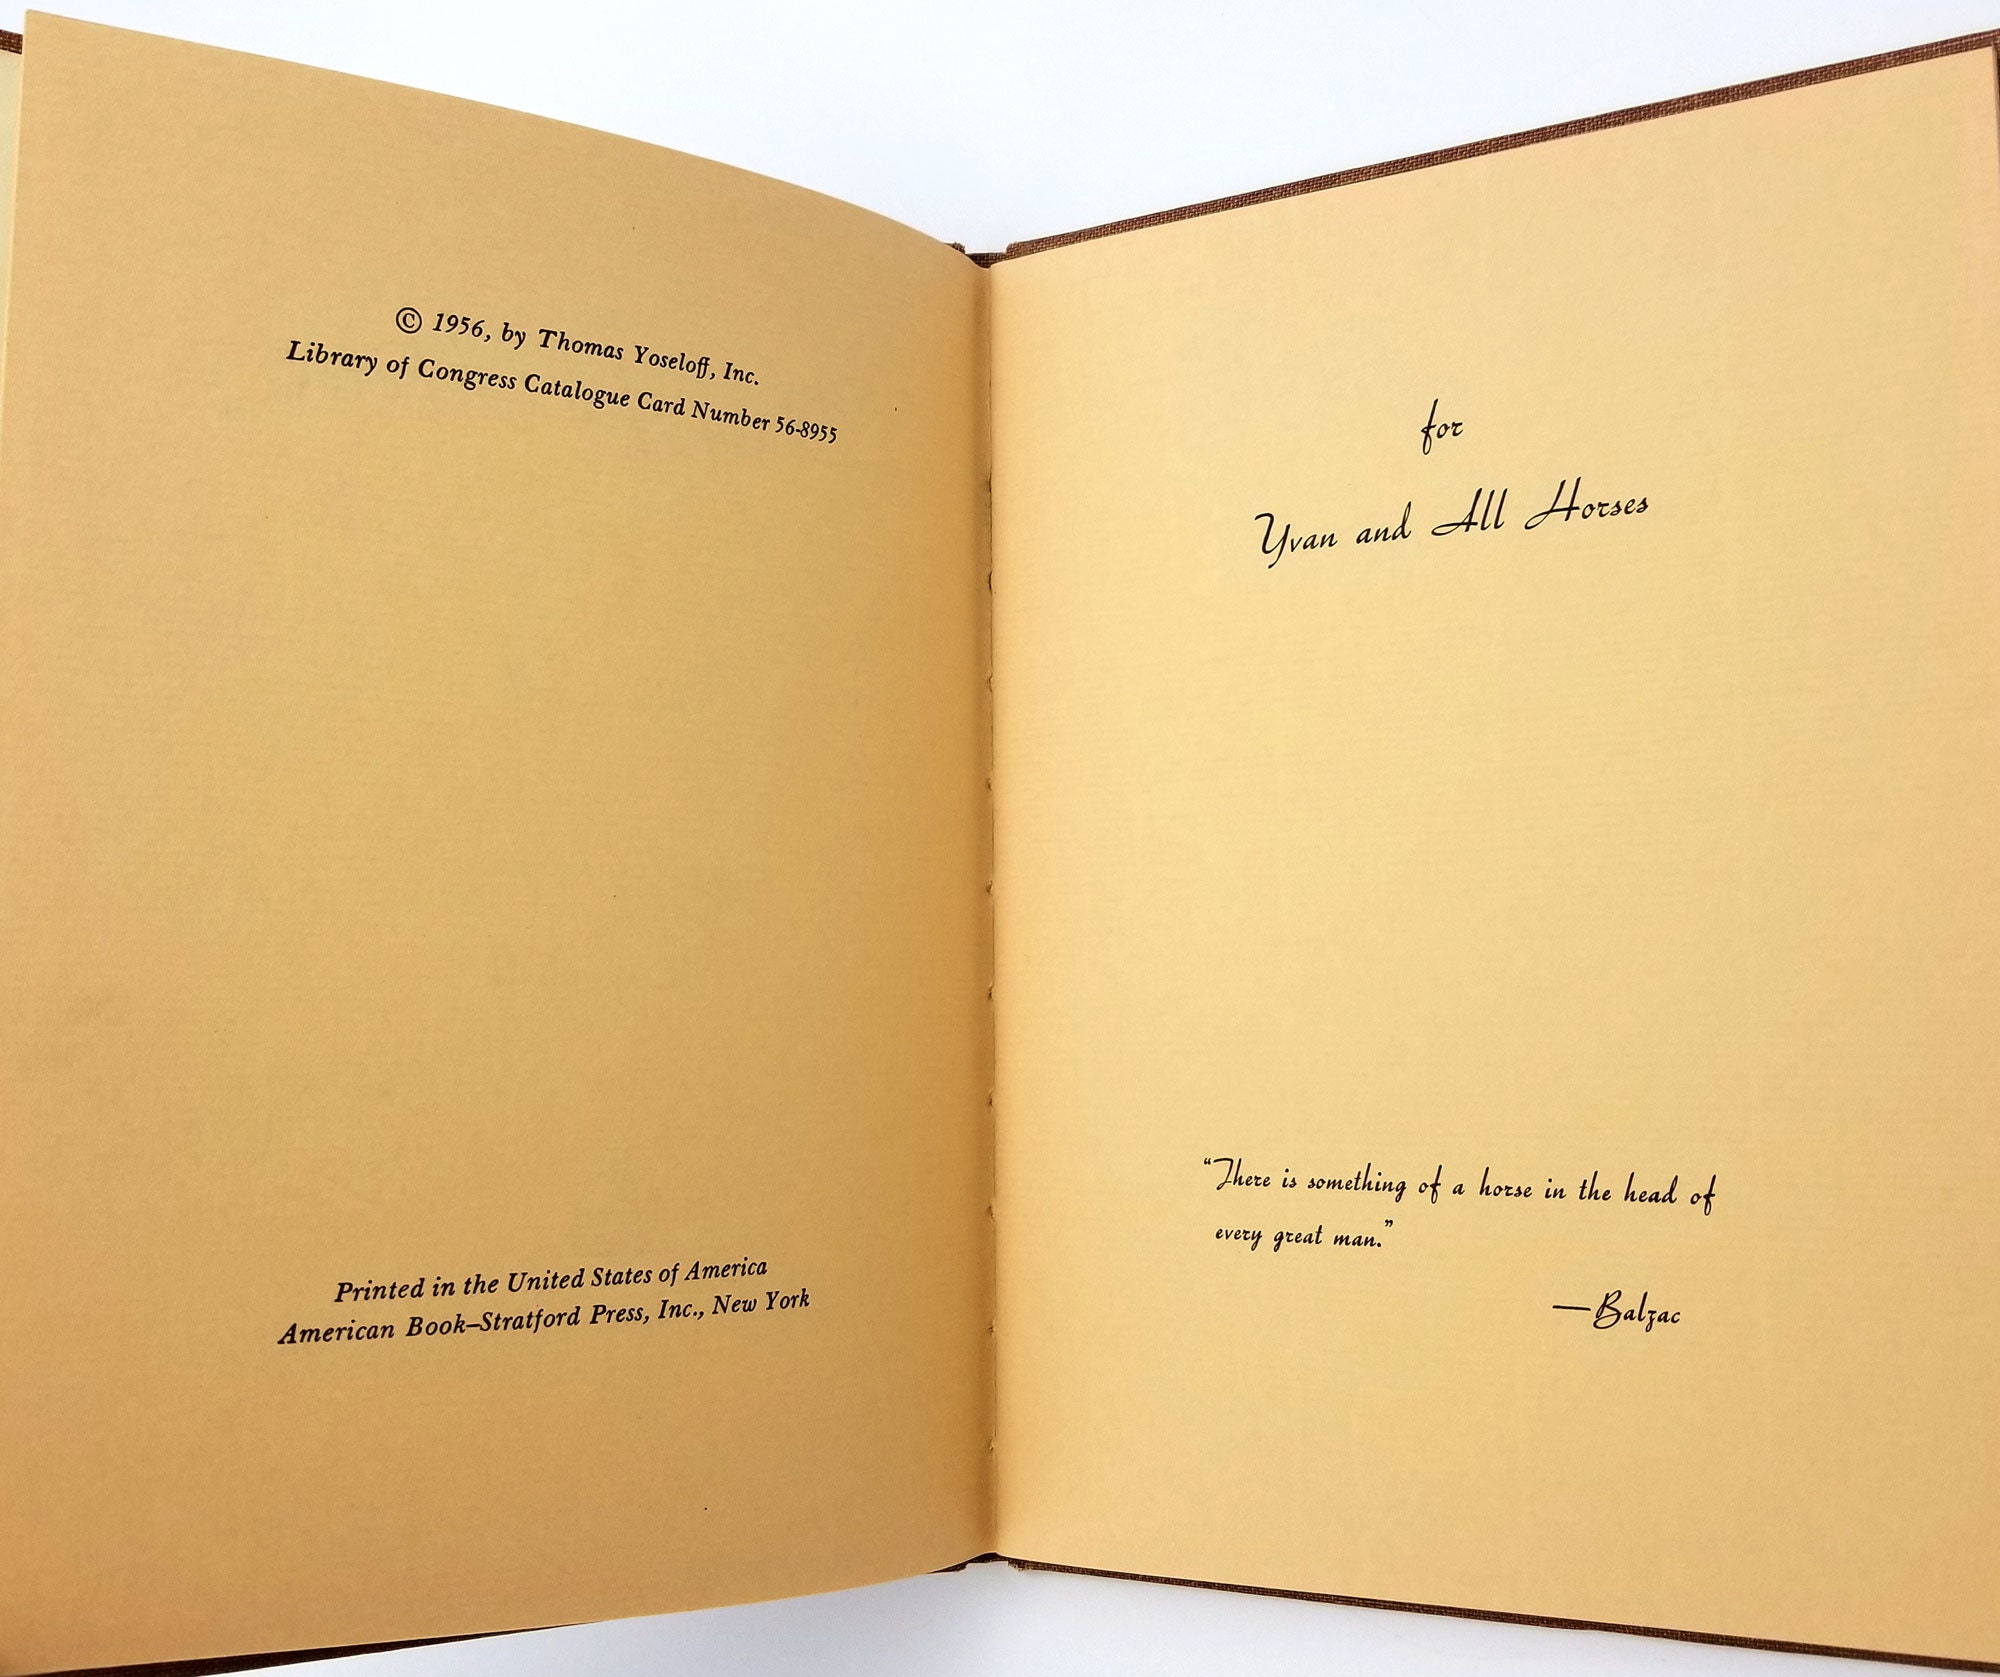 © 1956, by Thomas Yoseloff, Inc.
Library of Congress Catalogue Card Number 56-8955
Printed in the United States of America
American Book–Stratford Press, Inc., New York
for
Yvan and All Horses
“There is something of a horse in the head of
every great man.”
—Balzac